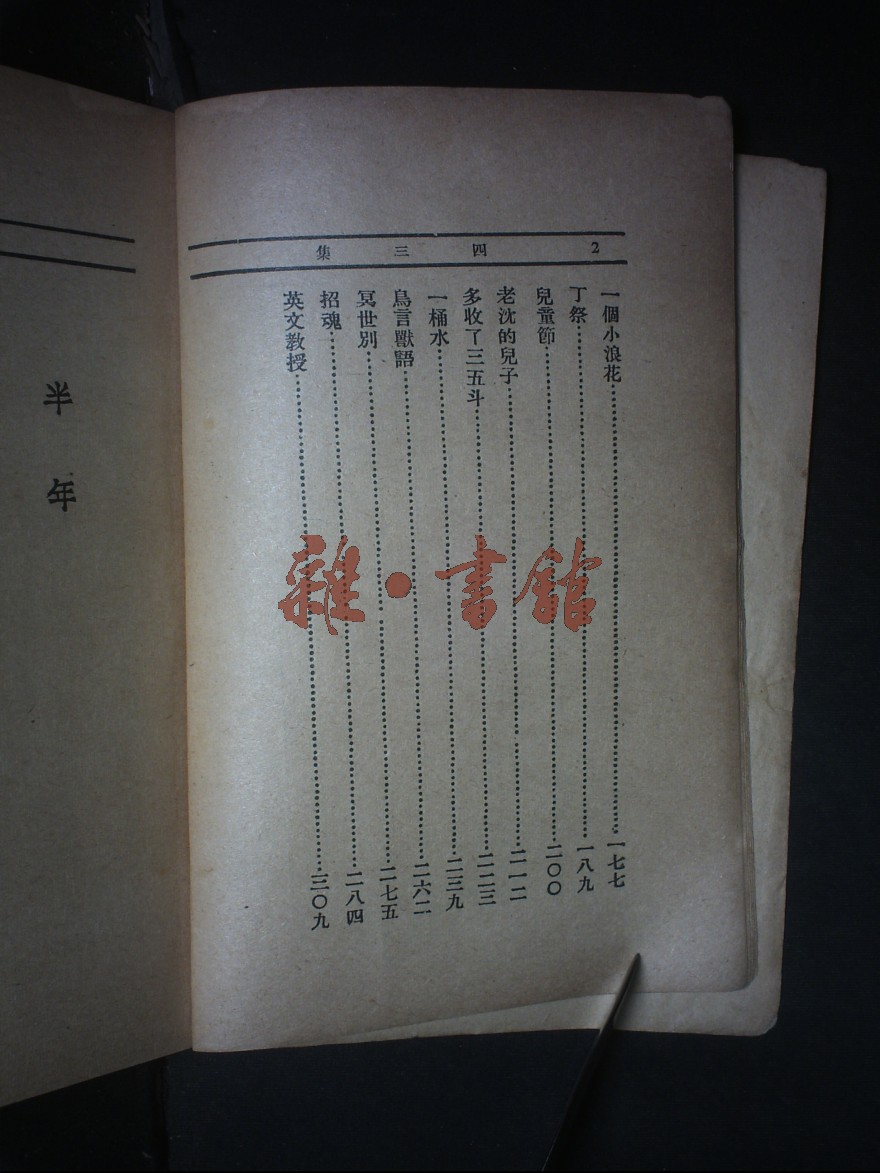 集 三 四 2
一個小浪花 一七七
丁祭 一八九
兒童節 二〇〇
老沈的兒子 二一二
多收了三五斗 二二三
一桶水 二三九
鳥言獸語 二六二
冥世別 二七五
招魂 二八四
英文教授 三〇九
半年
雜·書館